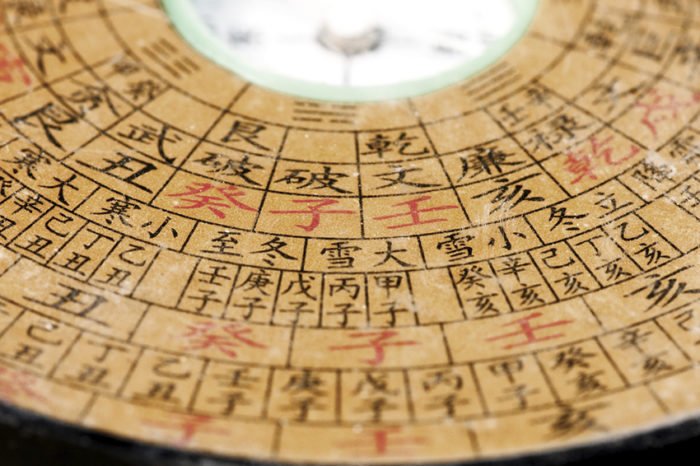 乾 艮
祿 廉 文 破 破 武 貪
戌 乾 亥 壬 子 癸 丑 艮
立冬 小雪 大雪 冬至 小寒 大寒
乙亥 丁亥 己亥 辛亥 癸亥 甲子 丙子 戊子 庚子 壬子 乙丑 丁丑 己丑 辛丑
亥 壬 子 癸 丑
辛亥 癸亥 甲子 丙子 戊子 庚子 壬子 乙丑 丁丑 己丑
亥 壬 子